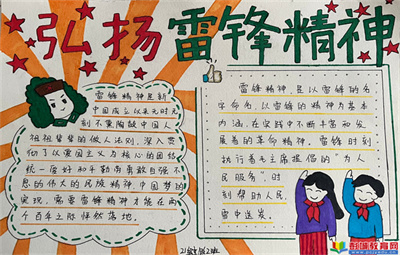 弘扬雷锋精神
雷锋精神是新
中国成立以来无时无
刻不熏陶敬中国人
祖祖辈辈的做人法则，深入贯
彻了以爱国主义为核心的团结
统一度好和平勤劳勇敢自强不
息的伟大的民族精神，中国梦的
实现，需要雷锋精神才能在两
个百年之际悄然落地。
雷锋精神，是以雷锋的名
字命名，以雷锋的精神为基本
内涵，在实践中不断丰富和发
展着的革命精神，雷锋时刻
执行着毛主席提倡的“为人
民服务”，时
刻帮助人民，
雪中送炭。